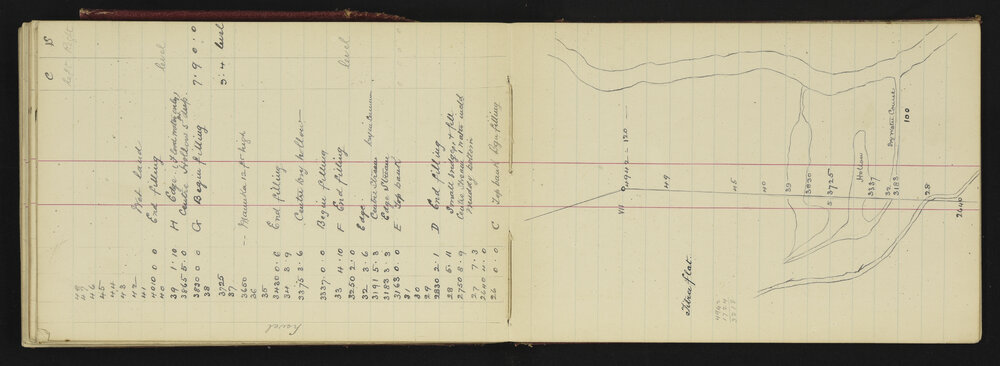 C D
level
48
47
46
45
44
43
42 Wet land
41
4010 0 0 End filling
40
39 1.10 H Edge
3865 5.0 Centre Hollow 5' deep
3830 0 0 G Begin filling 7.9 0.0
38
3725 3.4 level
37
3650 Manuka 12 ft high
36
35
3430 0.6 End filling
34 3 9
3375 3.6 Centre Boggy hollow
3337 0.0 Begin filling
33 4.10 F End filling level
3250 2.0
32 3.6 Edge
3191 5.3 Centre Stream
3183 3.3 Edge Stream
3163 0.0 E Top bank
31
30
29
2830 2.1 D End filling
28 5.11 Small bridge & fill
2750 8.9 Centre Stream 1' water width
27 7.3 Muddy bottom
2640 4.0
26 0.0 C Top bank Begin filling
level
VII 4942 120
49
45
40
39
3830
3725
Hollow
3337
Dry water Course
100
32
3183
28
2640
flat.
4942
1724
3218